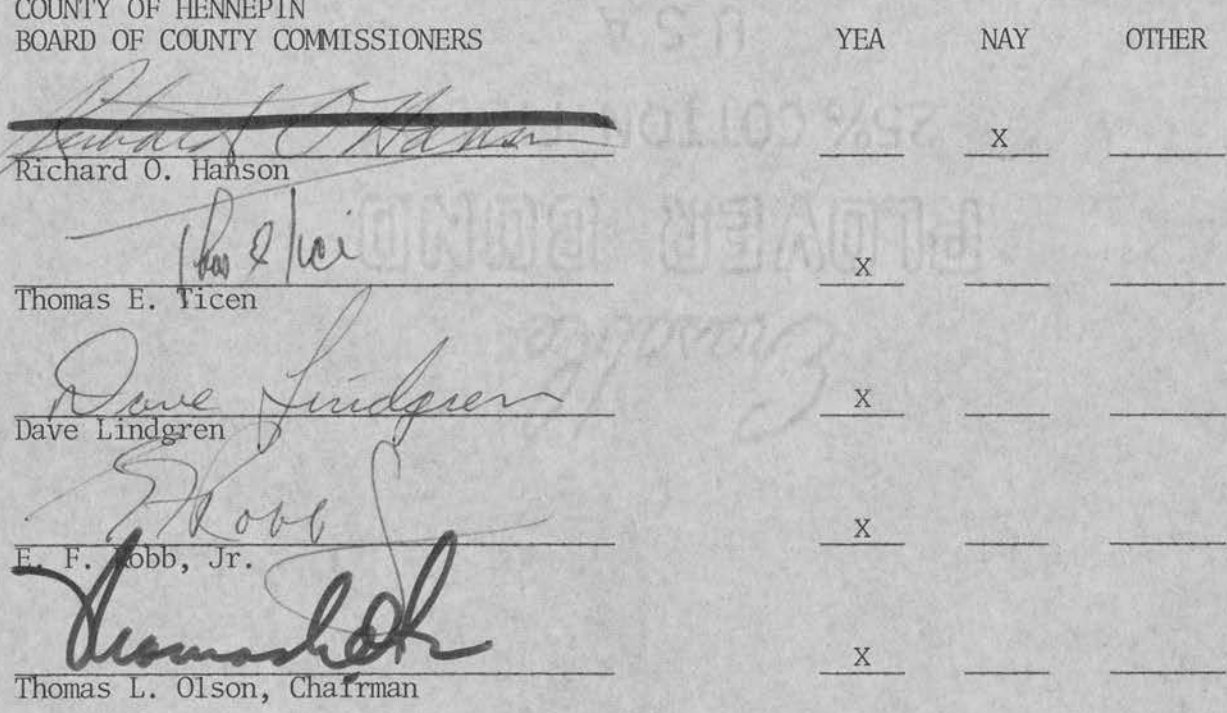 COUNTY OF HENNEPIN
BOARD OF COUNTY COMMISSIONERS YEA NAY OTHER
Richard O Hanson X
Richard O. Hanson
X
Thomas E. Ticen
Dave Lindgren X
Dave Lindgren
E F Robb Jr X
E. F. Robb, Jr.
X
Thomas L. Olson, Chairman
U S A
25% COTTON